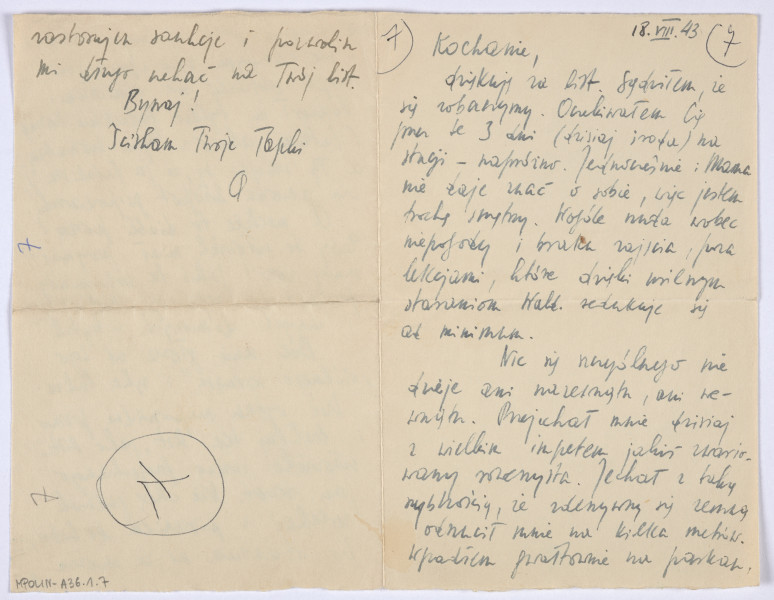 18.VIII.43
7
7
Kochanie,
dziękuję za list. Sądziłem, że
się zobaczymy. Oczekiwałem Cię
przez te 3 dni (dzisiaj środa) na
stacji – napróżno. Jednocześnie i Mama
nie daje znać o sobie, więc jestem
trochę smętny. Wogóle nuda wobec
niepogody i braku zajęcia, poza
lekcjami, które dzięki usilnym
staraniom Wald. redukuje się
ad minimum.
Nic się szczególnego nie
dzieje ani nazewnątrz, ani we-
wnątrz. Przejechał mnie dzisiaj
z wielkim impetem jakiś zwario-
wany rowerzysta. Jechał z taką
szybkością, że zderzywszy się ze mną
odrzucił mnie na kilka metrów.
Wpadłem gwałtownie na parkan,
zastosujesz sankcje i pozwolisz
mi długo czekać na Twój list.
Bywaj!
Ściskam Twoje Łapki
7
7
7
MPOLIN-A36.1.7